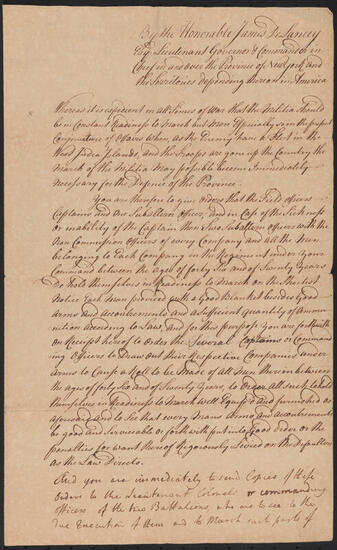 By the Honorable James DeLancey
Esqr Lieutenant Governor & Commander in
Chief in and over the Province of New York and
the Territories depending thereon in America
Whereas it is expedient in all Times of War that the Militia should
be in Constant Readiness to March but More Especially in the present
Conjuncture of Affairs when, as the Enemy have a Fleet in the
West Indea Islands, and the Troops are gon up the Country the
March of the Militia May possible become Immediately
Necessary for the Defence of the Province.
You are therefore to give orders that the Field officers
Captains and One Suballtern officer, and in Case of the Sickness
or inability of the Captain then Two Subaltern officers with the
Non Commission officers of every Company and all the Men
belonging to Each Company in the Regement under your
Command between the ages of forty Six and of Twenty Years
Do hold themselves in Readiness to March on the Shortest
Notice Each Man provided with a Good Blanket besides Good
Arms and accoutrements and a Sufficient Quantity of Ammu
nition according to Law, and for this purpose you are forthwith
on Receipt hereof to Order the Several Captains or Command
ing Officers to Draw out their Respective Companies under
arms to Cause a Roll to be Made of all Men therein between
the ages of forty Six and of Twenty Years, to Order all such to hold
themselves in Readiness to March well Equipt and furnished as
aforesaid and to See that every Mans Arms and accoutrements
be good and Serviceable or forthwith put into Good Order or the
penalties for want thereof Rigorously Levied on the Defaulters
as the Law Directs.
And you are immediately to send Copies of these
Orders to the Lieutenant Colonels or commanding
officers of the two Battalions, who are to see to the
due Execution of them and to March such parts of